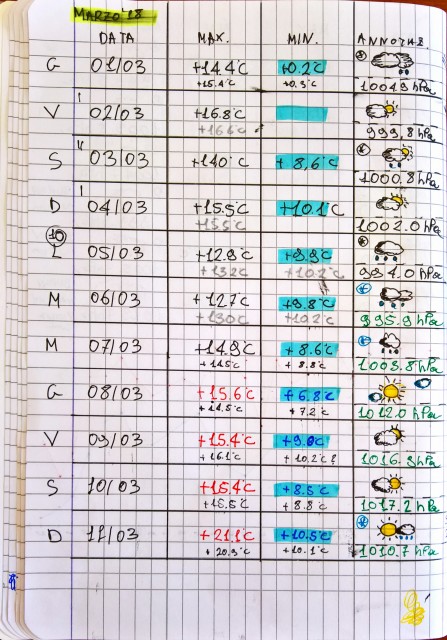 MARZO '18
DATA MAX. MIN. ANNOTAZ.
G 01/03 +14.4°C +0.2°C
+15.4°C +0.3°C 1004.9 hPa
V 02/03 +16.8°C
+16.6°C 999,8 hPa
S 03/03 +14.0°C +8,6°C
1000.8 hPa
D 04/03 +15.5°C +10.1°C
+15.5°C 1002.0 hPa
10
L 05/03 +12.9°C +9.9°C
+13.2°C +10.2°C 994.0 hPa
M 06/03 +12.7°C +9.8°C
+13.0°C +10.2°C 995.9 hPa
M 07/03 +14.9°C +8.6°C
+14.5°C +8.8°C 1003.8 hPa
G 08/03 +15.6°C +6.8°C
+14.5°C +7.2°C 1012.0 hPa
V 09/03 +15.4°C +9.0°C
+16.1°C +10.2°C? 1016.9 hPa
S 10/03 +15.4°C +8.5°C
+15.5°C +8.8°C 1017.2 hPa
D 11/03 +21.1°C +10.5°C
+20.9°C +10.1°C 1010.7 hPa